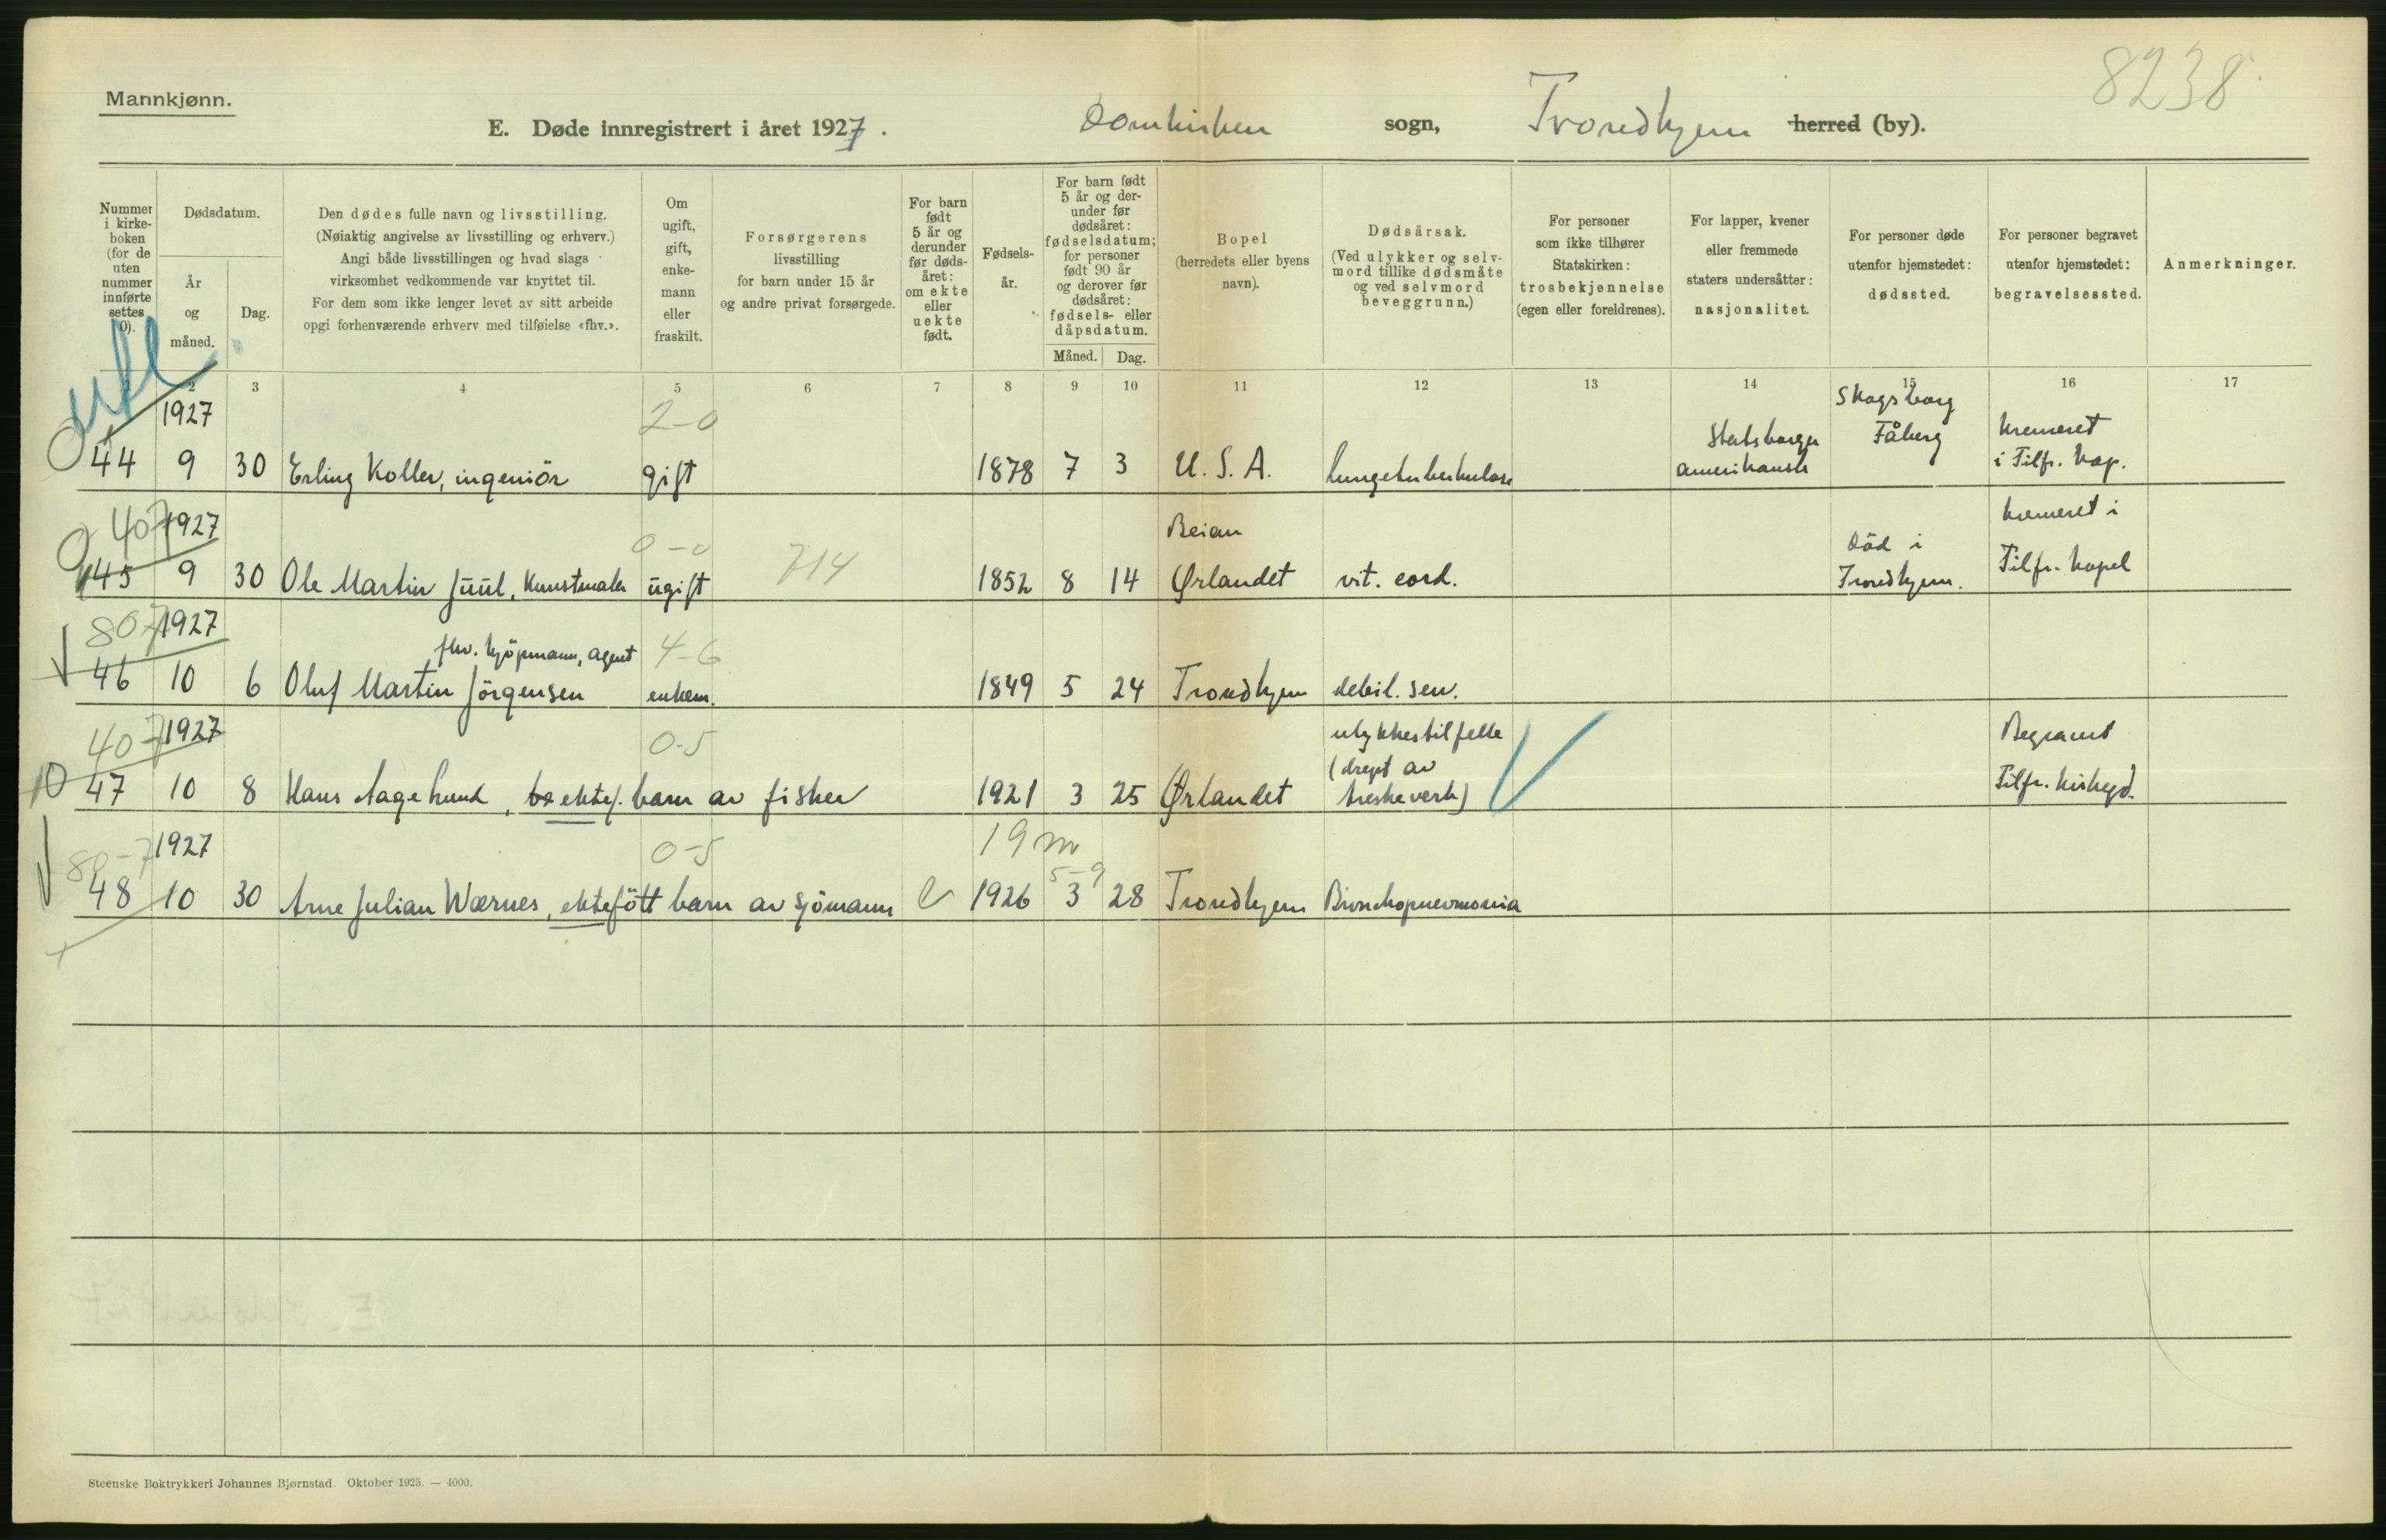 8238
Mannkjønn.
E. Døde innregistrert i året 1927. Domkirken sogn, Trondhjem herred (by).
Nummer i kirke-boken (for de uten nummer innførte settes 0).
Dødsdatum.
År og måned.
Dag.
Den dødes fulle navn og livsstilling.
(Nøiaktig angivelse av livsstilling og erhverv.)
Angi både livsstillingen og hvad slags
virksomhet vedkommende var knyttet til.
For dem som ikke lenger levet av sitt arbeide
opgi forhenværende erhverv med tilføielse «fhv.».
Om ugift, gift, enke-mann eller fraskilt.
Forsørgerens
livsstilling
for barn under 15 år
og andre privat forsørgede.
For barn født 5 år og derunder før døds-året: om ekte eller uekte født.
Fødsels-år.
For barn født 5 år og der-under før dødsåret: fødselsdatum; for personer født 90 år og derover før dødsåret: fødsels- eller dåpsdatum.
Måned. Dag.
Bopel
(herredets eller byens
navn).
Dødsårsak.
(Ved ulykker og selv-
mord tillike dødsmåte
og ved selvmord
beveggrunn.)
For personer
som ikke tilhører
Statskirken:
trosbekjennelse
(egen eller foreldrenes).
For lapper, kvener
eller fremmede
staters undersåtter:
nasjonalitet.
For personer døde
utenfor hjemstedet:
dødssted.
For personer begravet
utenfor hjemstedet:
begravelsessted.
Anmerkninger.
1 2 3 4 5 6 7 8 9 10 11 12 13 14 15 16 17
1927 2-0 Skogsborg
Statsborger Fåberg kremeret
44 9 30 Erling Koller, ingeniör gift 1878 7 3 U. S. A. lungetuberkulose amerikansk i Tilfr. kap.
407 1927 0-0 714 Beian død i kremeret i
45 9 30 Ole Martin Juul, Kunstmaler ugift 1852 8 14 Ørlandet vit. cord. Trondhjem. Tilfr. kapel
80-7 1927 fhv. kjöpmann, agent 4-6
46 10 6 Oluf Martin Jörgensen enkem. 1849 5 24 Trondhjem debil. sen.
40-7 1927 0-5 ulykkestilfelle Begravet
(drept av
47 10 8 Hans Aage Lund, ektef. barn av fisker 1921 3 25 Ørlandet treskeverk) Tilfr. kirkegd.
80-7 1927 0-5 19 m
5-9
48 10 30 Arne Julian Wærnes, ektefött barn av sjömann e 1926 3 28 Trondhjem Bronchopneumonia
Steenske Boktrykkeri Johannes Bjørnstad. Oktober 1925. — 4000.